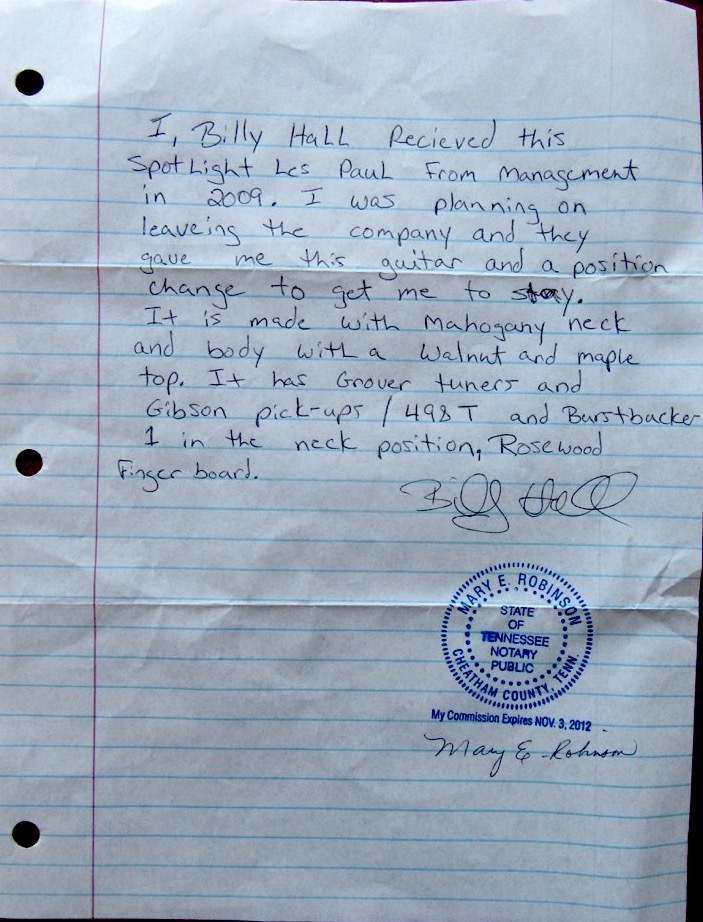 I, Billy Hall Recieved this
Spotlight Les Paul From Management
in 2009. I was planning on
leaveing the company and they
gave me this guitar and a position
change to get me to stay.
It is made with Mahogany neck
and body with a Walnut and maple
top. It has Grover tuners and
Gibson pick-ups / 498T and Burstbucker
1 in the neck position, Rosewood
Finger board.
Billy Hall
MARY E. ROBINSON
STATE
OF
TENNESSEE
NOTARY
PUBLIC
CHEATHAM COUNTY, TENN.
My Commission Expires NOV. 3, 2012
Mary E. Robinson